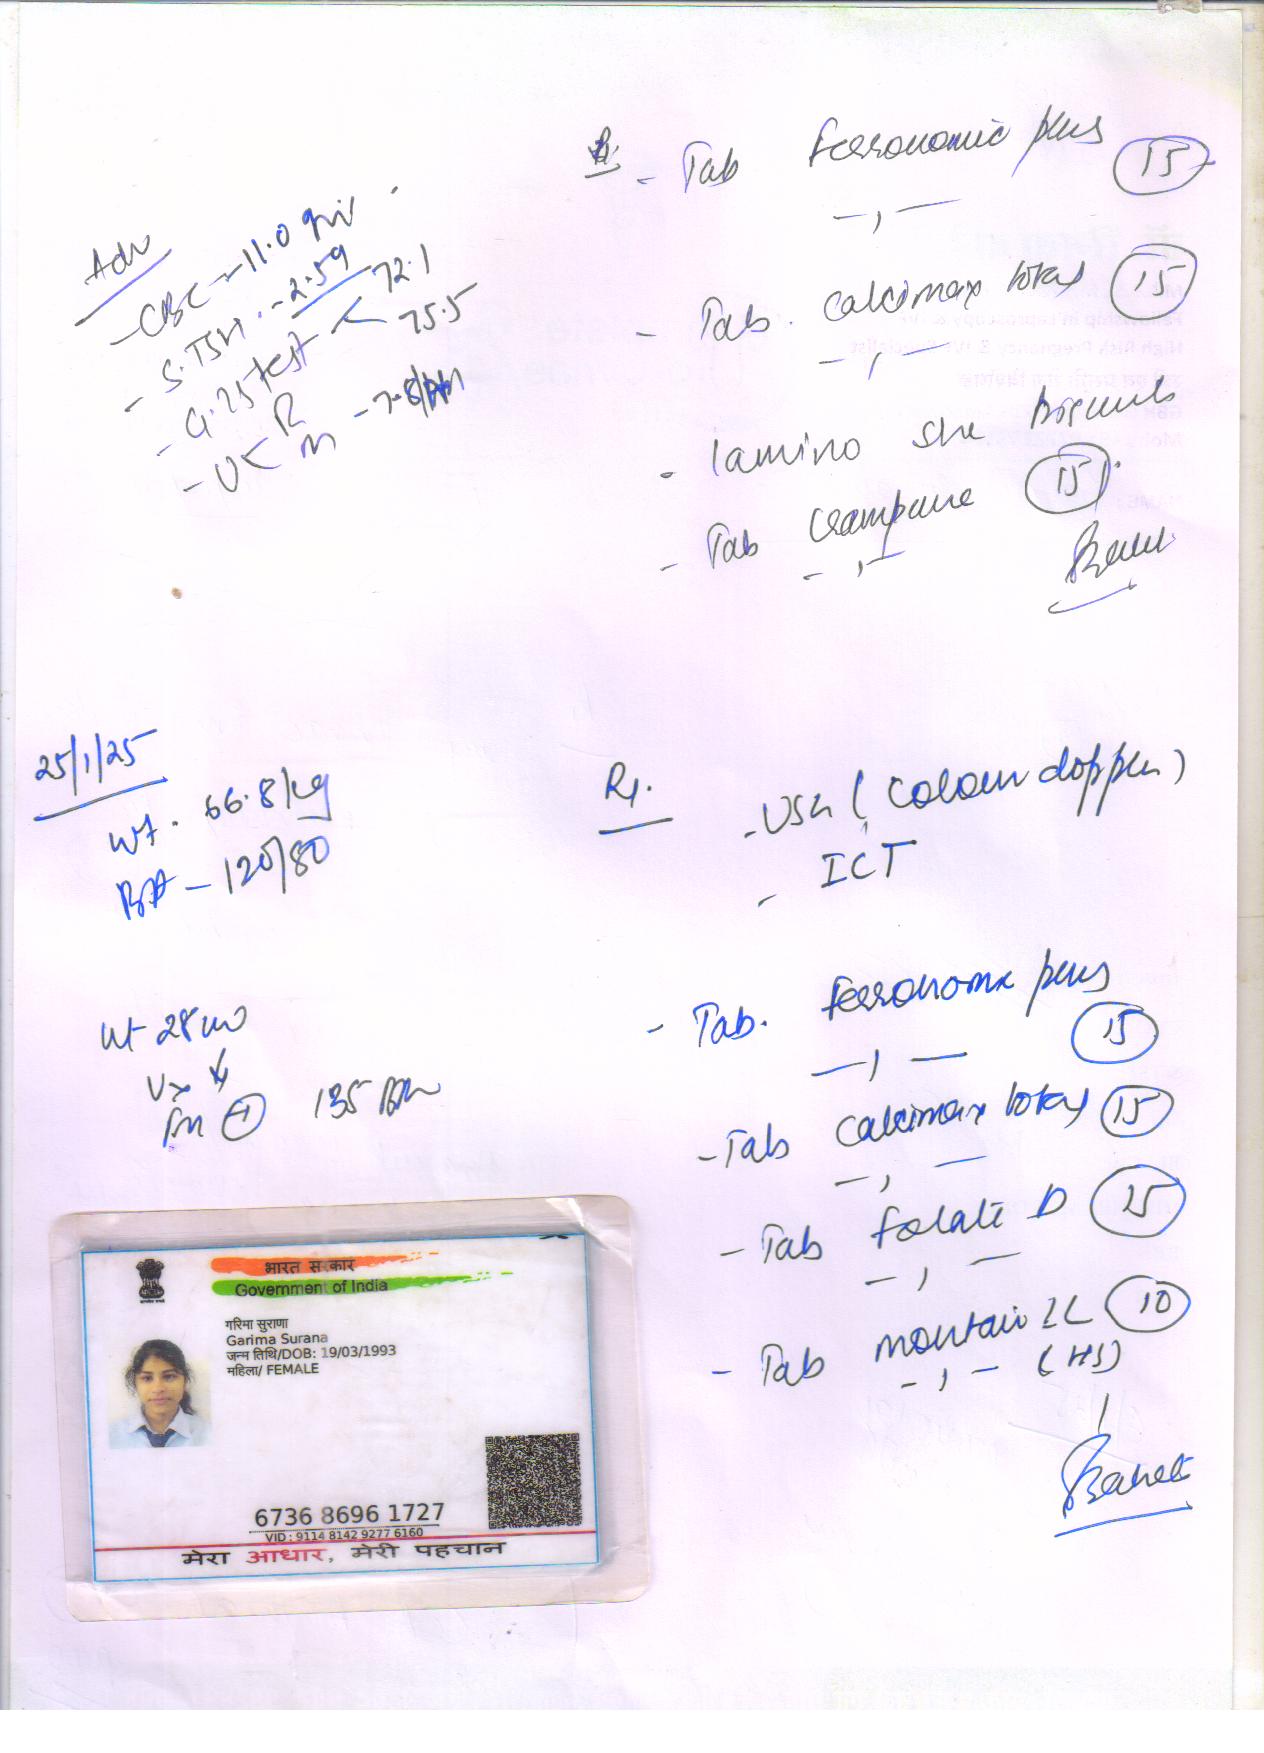 Adv
- CBC - 11.0 gm
- S. TSH - 2.59
- G. 75 test < 72.1
75.5
- U < R
M - 7-8/
R
- Tab ferronomic plus 15
- Tab. calcimax total 15
- lamino she biscuits
- Tab crampure 15
25/1/25
Wt. 66.8/kg
BP - 120/80
Rx.
- USG (colour doppler)
- ICT
Ut 28 w
Vx
FM + 135 BPM
- Tab. ferronomic plus 15
- Tab calcimax total 15
- Tab folate D 25
- Tab montair LC 10
(HS)
भारत सरकार
Government of India
गरिमा सुराणा
Garima Surana
जन्म तिथि/DOB: 19/03/1993
महिला/ FEMALE
6736 8696 1727
VID : 9114 8142 9277 6160
मेरा आधार, मेरी पहचान